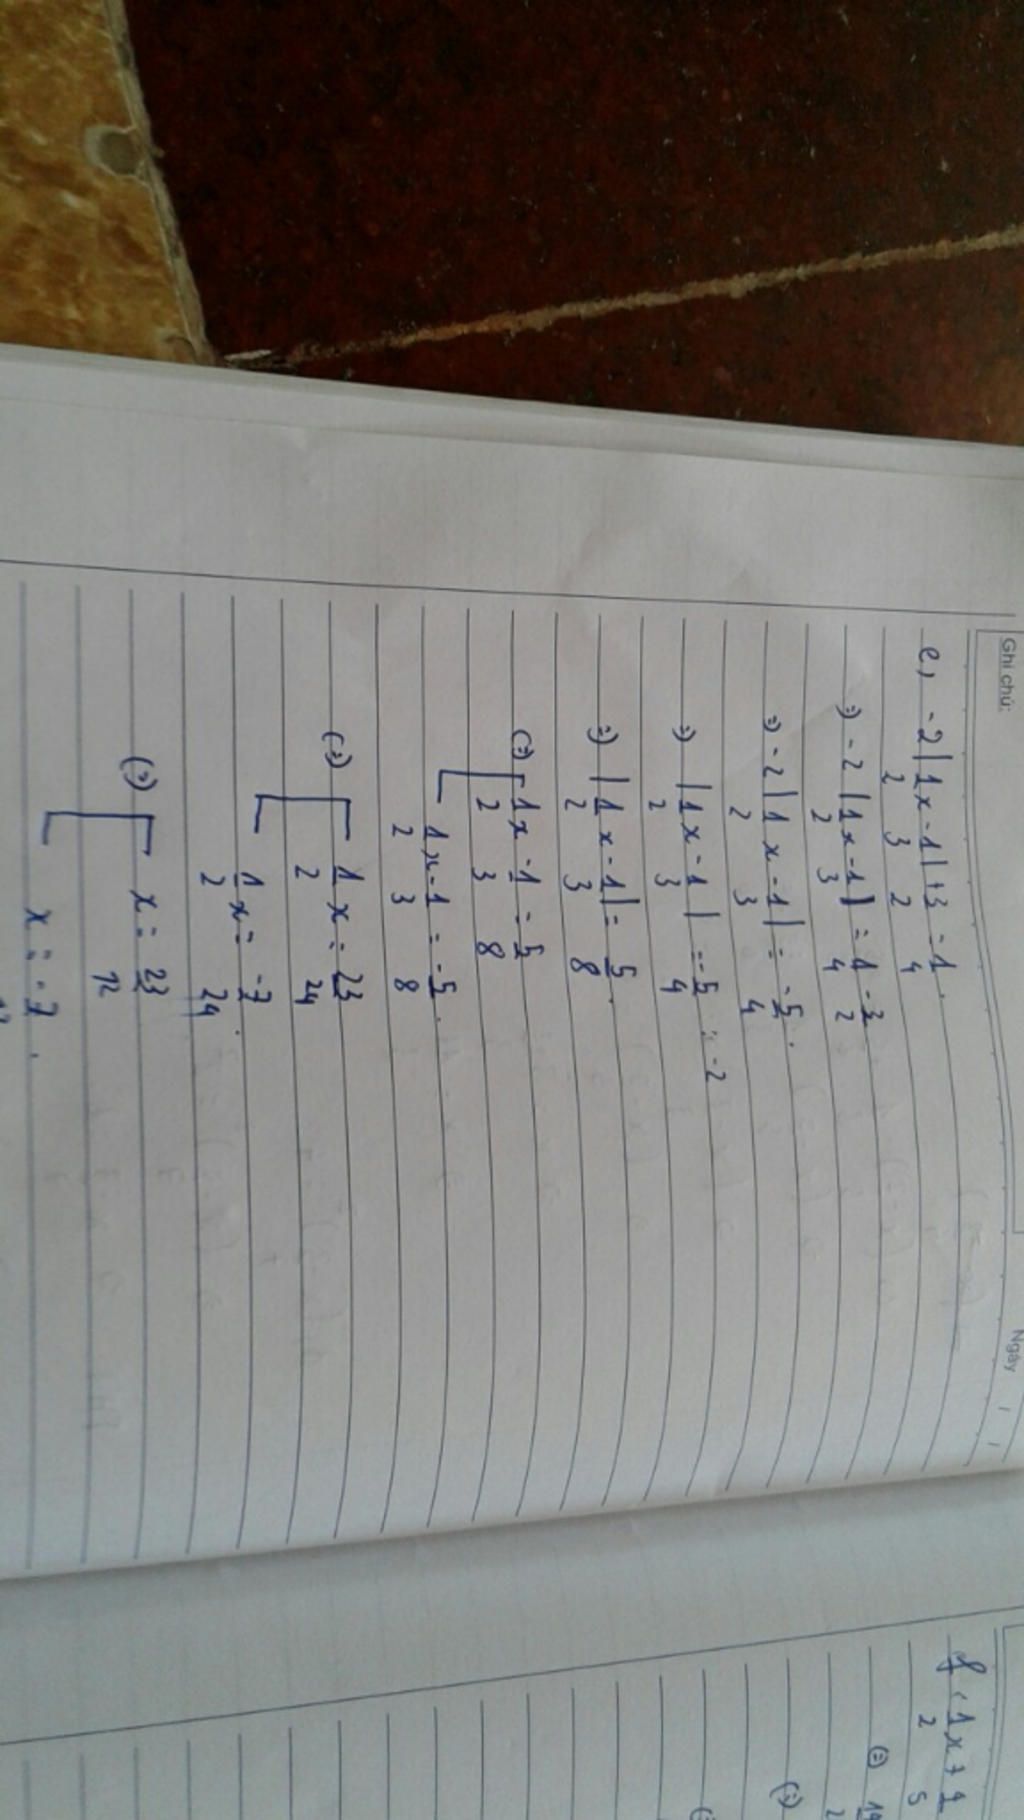 Ghi chú:
Ngày / /
e, -2|1/2 x - 1/3| + 3/2 = 1/4.
=) -2|1/2 x - 1/3| = 1/4 - 3/2
=) -2|1/2 x - 1/3| = -5/4.
=) |1/2 x - 1/3| = -5/4 : -2
=) |1/2 x - 1/3| = 5/8.
(=) [ 1/2 x - 1/3 = 5/8
1/2 x - 1/3 = -5/8.
(=) [ 1/2 x = 23/24
1/2 x = -7/24.
(=) [ x = 23/12
x = -7/12.